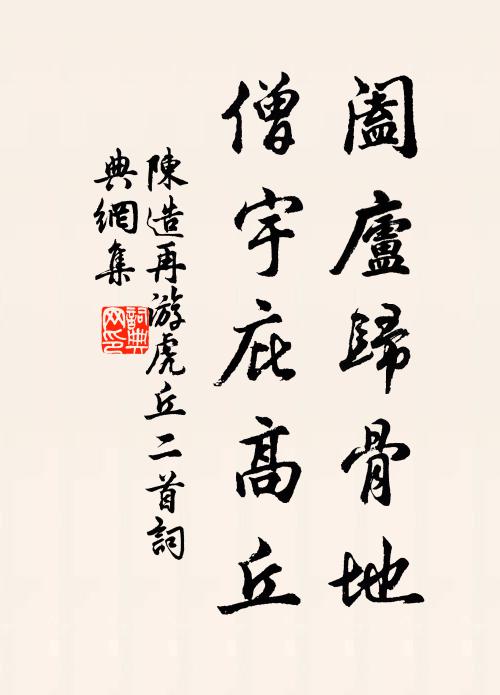 闔廬歸骨地
僧宇庇高丘
陳造再游虎丘二首詞
典網集
詞典
网印